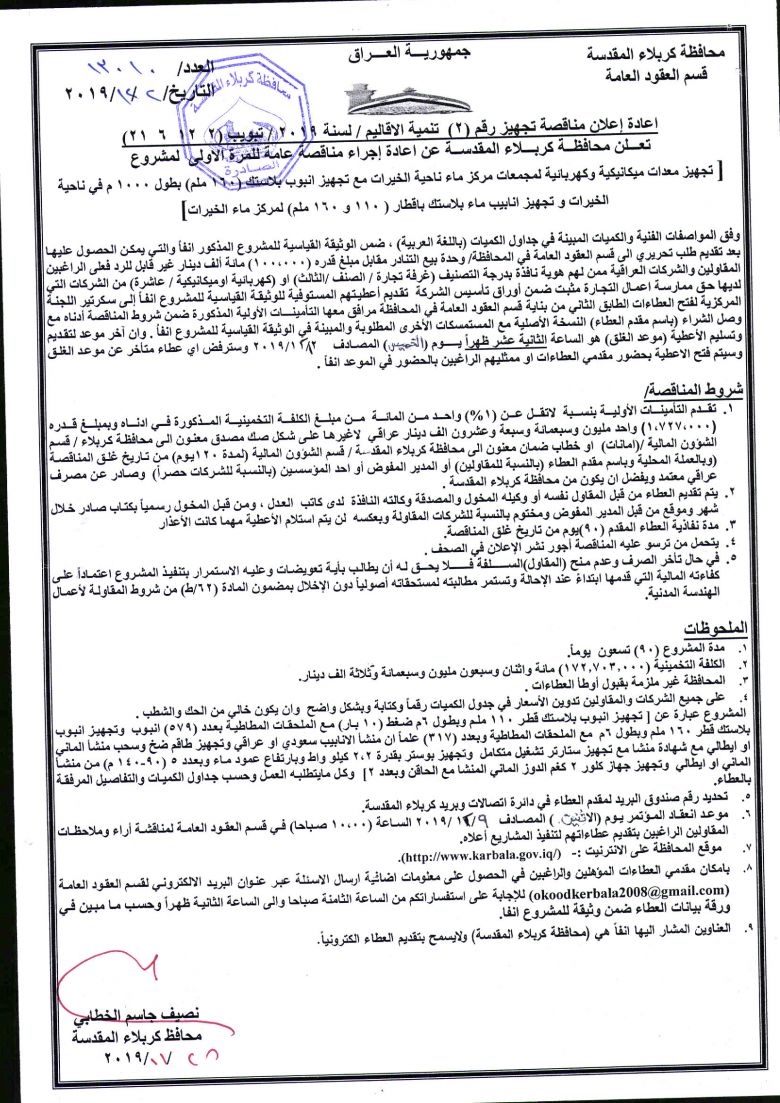 جمهورية العراق
محافظة كربلاء المقدسة
قسم العقود العامة
العدد/ ١٣٠١٠
التاريخ/ ٢ /١٢/ ٢٠١٩
محافظة كربلاء المقدسة
الصادرة
اعادة إعلان مناقصة تجهيز رقم (٢) تنمية الاقاليم / لسنة ٢٠١٩ / تبويب (٢ ٢ ١٢ ٦ ٢١)
تعلن محافظة كربلاء المقدسة عن اعادة إجراء مناقصة عامة للمرة الاولى لمشروع
[ تجهيز معدات ميكانيكية وكهربائية لمجمعات مركز ماء ناحية الخيرات مع تجهيز انبوب بلاستك (١١٠ ملم) بطول ١٠٠٠ م في ناحية
الخيرات و تجهيز انابيب ماء بلاستك باقطار ( ١١٠ و ١٦٠ ملم) لمركز ماء الخيرات]
وفق المواصفات الفنية والكميات المبينة في جداول الكميات (باللغة العربية) ، ضمن الوثيقة القياسية للمشروع المذكور انفاً والتي يمكن الحصول عليها
بعد تقديم طلب تحريري الى قسم العقود العامة في المحافظة/ وحدة بيع التنادر مقابل مبلغ قدره (١٠٠٠٠٠) مائة ألف دينار غير قابل للرد فعلى الراغبين
المقاولين والشركات العراقية ممن لهم هوية نافذة بدرجة التصنيف (غرفة تجارة / الصنف /الثالث) او (كهربائية اوميكانيكية / عاشرة) من الشركات التي
لديها حق ممارسة اعمال التجارة مثبت ضمن أوراق تأسيس الشركة تقديم أعطيتهم المستوفية للوثيقة القياسية للمشروع انفاً إلى سكرتير اللجنة
المركزية لفتح العطاءات الطابق الثاني من بناية قسم العقود العامة في المحافظة مرافق معها التأمينات الأولية المذكورة ضمن شروط المناقصة أدناه مع
وصل الشراء (باسم مقدم العطاء) النسخة الأصلية مع المستمسكات الأخرى المطلوبة والمبينة في الوثيقة القياسية للمشروع انفاً . وان آخر موعد لتقديم
وتسليم الأعطية (موعد الغلق) هو الساعة الثانية عشر ظهراً يوم (الخميس) المصادف ٢٠١٩/١٢/ وسترفض اي عطاء متأخر عن موعد الغلق
وسيتم فتح الاعطية بحضور مقدمي العطاءات او ممثليهم الراغبين بالحضور في الموعد انفاً .
شروط المناقصة/
١. تقدم التأمينات الأولية بنسبة لاتقل عن (١%) واحد من المائة من مبلغ الكلفة التخمينية المذكورة في ادناه وبمبلغ قدره
(١،٧٢٧،٠٠٠) واحد مليون وسبعمائة وسبعة وعشرون الف دينار عراقي لاغيرها على شكل صك مصدق معنون الى محافظة كربلاء / قسم
الشؤون المالية /(امانات) او خطاب ضمان معنون الى محافظة كربلاء المقدسة / قسم الشؤون المالية (لمدة ١٢٠يوم) من تاريخ غلق المناقصة
(وبالعملة المحلية وباسم مقدم العطاء (بالنسبة للمقاولين) أو المدير المفوض أو احد المؤسسين (بالنسبة للشركات حصراً) وصادر عن مصرف
عراقي معتمد ويفضل ان يكون من محافظة كربلاء المقدسة .
٢. يتم تقديم العطاء من قبل المقاول نفسه أو وكيله المخول والمصدقة وكالته النافذة لدى كاتب العدل ، ومن قبل المخول رسمياً بكتاب صادر خلال
شهر وموقع من قبل المدير المفوض ومختوم بالنسبة للشركات المقاولة وبعكسه لن يتم استلام الأعطية مهما كانت الأعذار
٣. مدة نفاذية العطاء المقدم (٩٠)يوم من تاريخ غلق المناقصة.
٤. يتحمل من ترسو عليه المناقصة أجور نشر الإعلان في الصحف .
٥. في حال تأخر الصرف وعدم منح (المقاول)السلفة فلا يحق له أن يطالب بأية تعويضات وعليه الاستمرار بتنفيذ المشروع اعتماداً على
كفاءته المالية التي قدمها ابتداءً عند الإحالة وتستمر مطالبته لمستحقاته أصولياً دون الإخلال بمضمون المادة (٦٢/ط) من شروط المقاولة لأعمال
الهندسة المدنية.
الملحوظات
١. مدة المشروع (٩٠) تسعون يوماً.
٢. الكلفة التخمينية (١٧٢,٧٠٣,٠٠٠) مائة واثنان وسبعون مليون وسبعمائة وثلاثة الف دينار.
٣. المحافظة غير ملزمة بقبول أوطأ العطاءات .
٤. على جميع الشركات والمقاولين تدوين الأسعار في جدول الكميات رقماً وكتابة وبشكل واضح وان يكون خالي من الحك والشطب .
المشروع عبارة عن [ تجهيز انبوب بلاستك قطر ١١٠ ملم وبطول ٦م ضغط (١٠ بار) مع الملحقات المطاطية بعدد (٥٧٩) انبوب وتجهيز انبوب
بلاستك قطر ١٦٠ ملم وبطول ٦م مع الملحقات المطاطية وبعدد (٣١٧) علماً ان منشأ الانابيب سعودي او عراقي وتجهيز طاقم ضخ وسحب منشأ الماني
او ايطالي مع شهادة منشا مع تجهيز ستارتر تشغيل متكامل وتجهيز بوستر بقدرة ٢،٢ كيلو واط وبارتفاع عمود ماء وبعدد ٥ (٩٠-١٤٠ م) من منشأ
الماني او ايطالي وتجهيز جهاز كلور ٢ كغم الدوز الماني المنشا مع الحاقن وبعدد ٢] وكل مايتطلبه العمل وحسب جداول الكميات والتفاصيل المرفقة
بالعطاء.
٥. تحديد رقم صندوق البريد لمقدم العطاء في دائرة اتصالات وبريد كربلاء المقدسة.
٦. موعد انعقاد المؤتمر يوم (الاثنين) المصادف ٩/١٢/٢٠١٩ الساعة (١٠،٠٠ صباحا) في قسم العقود العامة لمناقشة أراء وملاحظات
المقاولين الراغبين بتقديم عطاءاتهم لتنفيذ المشاريع أعلاه.
٧. موقع المحافظة على الانترنيت :- (http://www.karbala.gov.iq/).
٨. بامكان مقدمي العطاءات المؤهلين والراغبين في الحصول على معلومات اضافية ارسال الاسئلة عبر عنوان البريد الالكتروني لقسم العقود العامة
(okoodkerbala2008@gmail.com) للإجابة على استفساراتكم من الساعة الثامنة صباحا والى الساعة الثانية ظهراً وحسب ما مبين في
ورقة بيانات العطاء ضمن وثيقة للمشروع انفا.
٩. العناوين المشار اليها انفاً هي (محافظة كربلاء المقدسة) ولايسمح بتقديم العطاء الكترونياً.
نصيف جاسم الخطابي
محافظ كربلاء المقدسة
٢٠١٩/١١/٢٨